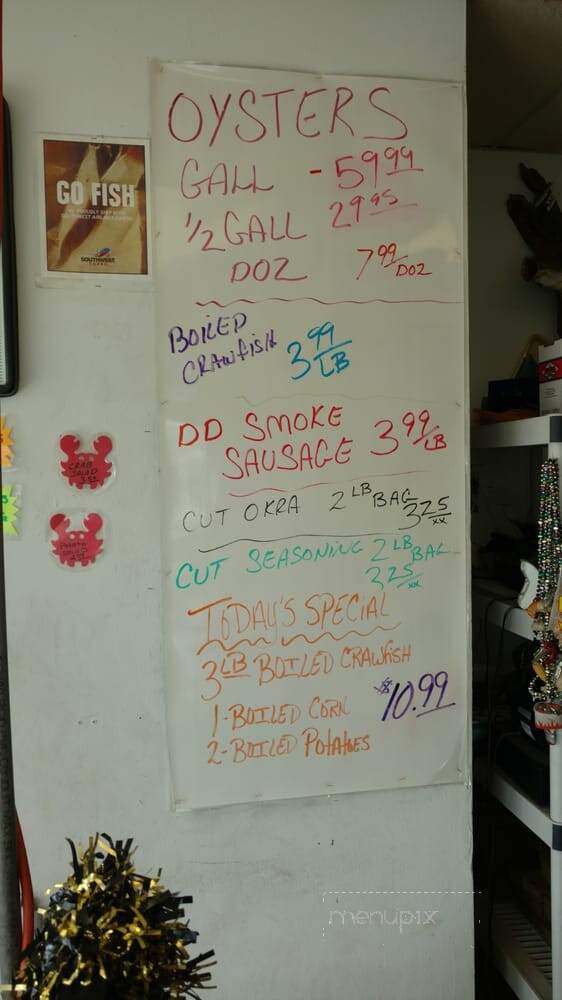 OYSTERS
GALL - 59.99
1/2 GALL 29.95
DOZ 7.99 DOZ
BOILED
CRAWFISH 3.99/LB
DD SMOKE
SAUSAGE 3.99/LB
CUT OKRA 2 LB BAG
3.25/xx
CUT SEASONING 2 LB BAG
3.25/xx
TODAY'S SPECIAL
3 LB BOILED CRAWFISH
1-BOILED CORN $10.99
2-BOILED POTATOES
GO FISH
SOUTHWEST
CARGO
CRAB
SALAD
POTATO
menupix